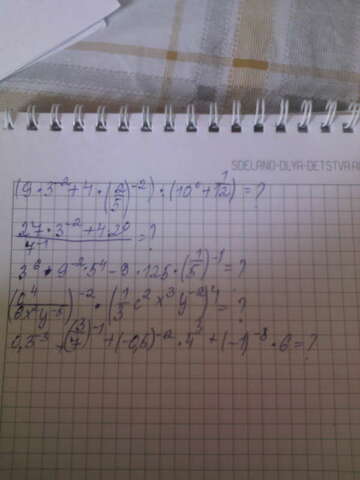 SDELANO-DLYA-DETSTVA.R
(9 · 3⁻² + 4 · (2/5)⁻²) · (10⁰ + 1/12) = ?
27 · 3⁻² + 4 · 2⁰ / 4⁻¹ = ?
3⁶ · 9⁻² · 5⁴ - 8 · 125 · (1/5)⁻¹ = ?
)⁻² · (1/3 c² x³ y⁻²)⁴ = ?
(3/7)⁻¹ + (-0,5)⁻² · 4³ + (-1)⁻⁸ · 6 = ?